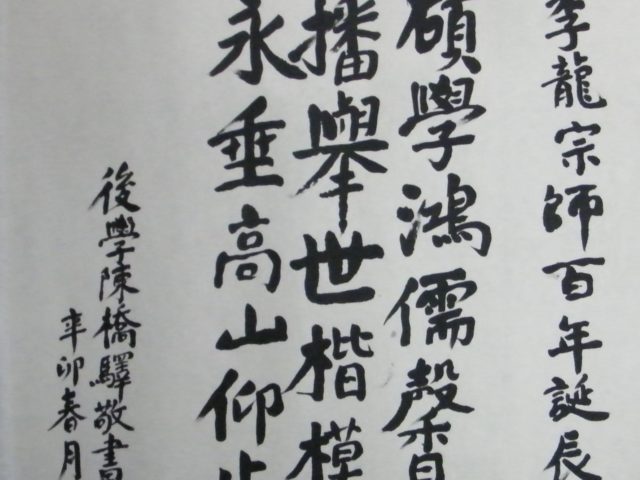 李龍宗師百年誕辰
碩學鴻儒馨
播舉世楷模
永垂高山仰止
後學陳橋驛敬書
辛卯春月